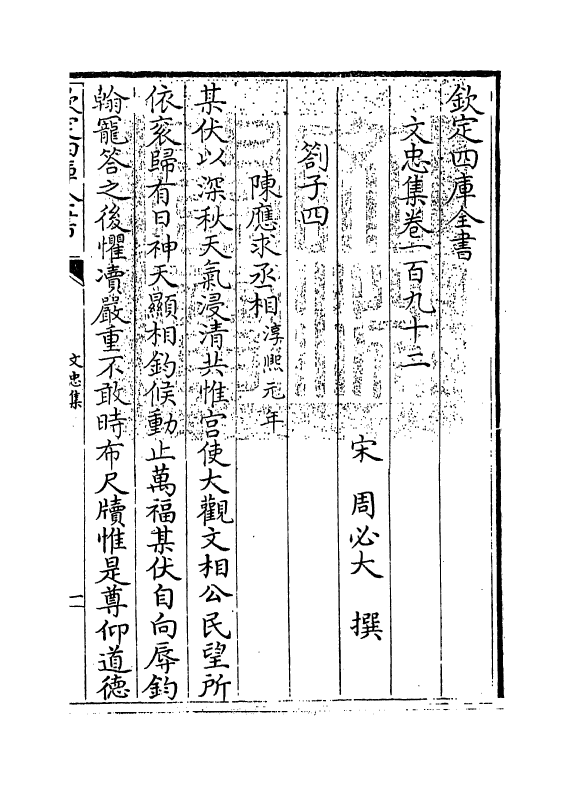 欽定四庫全書
文忠集卷一百九十三
宋 周必大 撰
劄子四
陳應求丞相 淳熙元年
某伏以深秋天氣浸清共惟宫使大觀文相公民望所
依衮歸有日神天顯相鈞候動止萬福某伏自向辱鈞
翰寵答之後懼凟嚴重不敢時布尺牘惟是尊仰道德
欽定四庫全書
文忠集